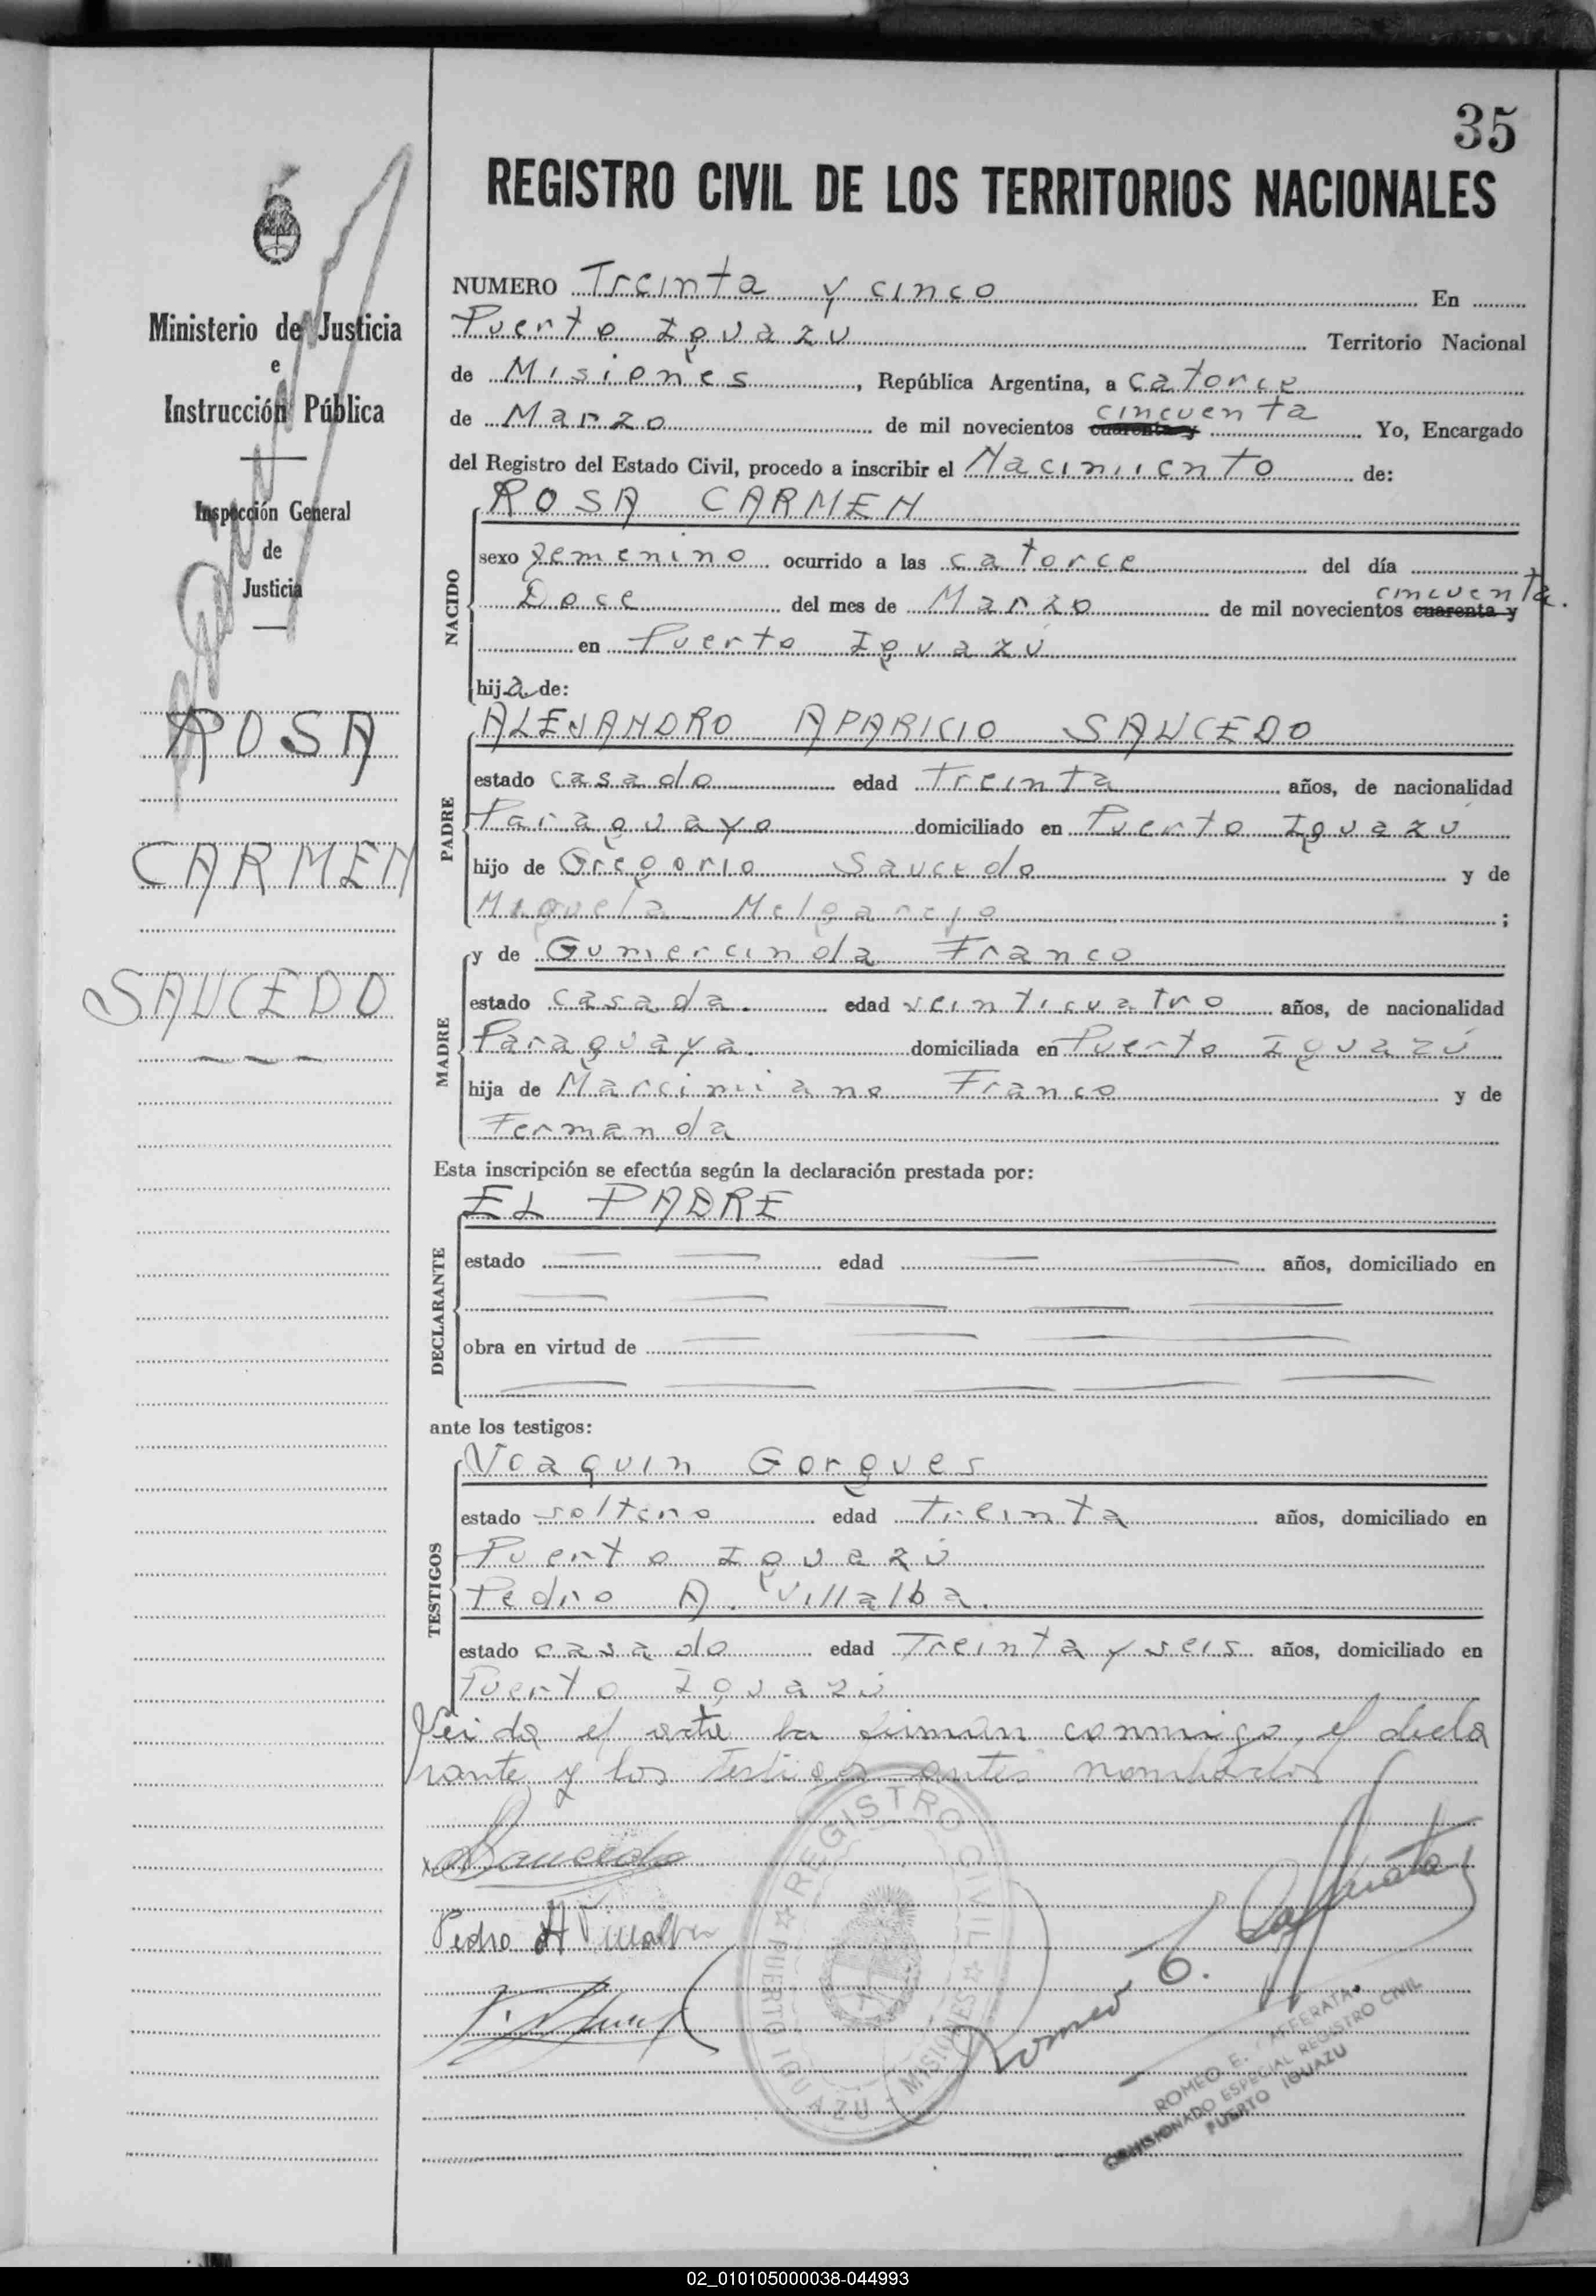 35
REGISTRO CIVIL DE LOS TERRITORIOS NACIONALES
Ministerio de Justicia
e
Instrucción Pública
Inspección General
de
Justicia
ROSA
CARMEN
SAUCEDO
NUMERO Treinta y cinco En
Puerto Iguazu Territorio Nacional
de Misiones, República Argentina, a catorce
de Marzo de mil novecientos cuarenta y cincuenta Yo, Encargado
del Registro del Estado Civil, procedo a inscribir el Nacimiento de:
NACIDO
ROSA CARMEN
sexo femenino ocurrido a las catorce del día
Doce del mes de Marzo de mil novecientos cuarenta y cincuenta.
en Puerto Iguazú
hija de:
PADRE
ALEJANDRO APARICIO SAUCEDO
estado casado edad Treinta años, de nacionalidad
Paraguayo domiciliado en Puerto Iguazú
hijo de Gregorio Saucedo y de
Miguela Melgarejo ;
MADRE
y de Gumercinda Franco
estado casada. edad veinticuatro años, de nacionalidad
Paraguaya. domiciliada en Puerto Iguazú
hija de Marcimiano Franco y de
Fermanda
Esta inscripción se efectúa según la declaración prestada por:
DECLARANTE
EL PADRE
estado edad años, domiciliado en
obra en virtud de
ante los testigos:
TESTIGOS
Joaquin Gorgues
estado soltero edad Treinta años, domiciliado en
Puerto Iguazú
Pedro A. Villalba.
estado casado edad Treinta y seis años, domiciliado en
Puerto Iguazú
Leida el acta la firman conmigo, el decla
rante y los testigos antes nombrados
Saucedo
Pedro A Villalba
Romeo E. Cafferata
REGISTRO CIVIL
PUERTO IGUAZU - MISIONES
ROMEO E. CAFFERATA
COMISIONADO ESPECIAL REGISTRO CIVIL
PUERTO IGUAZU
02_010105000038-044993